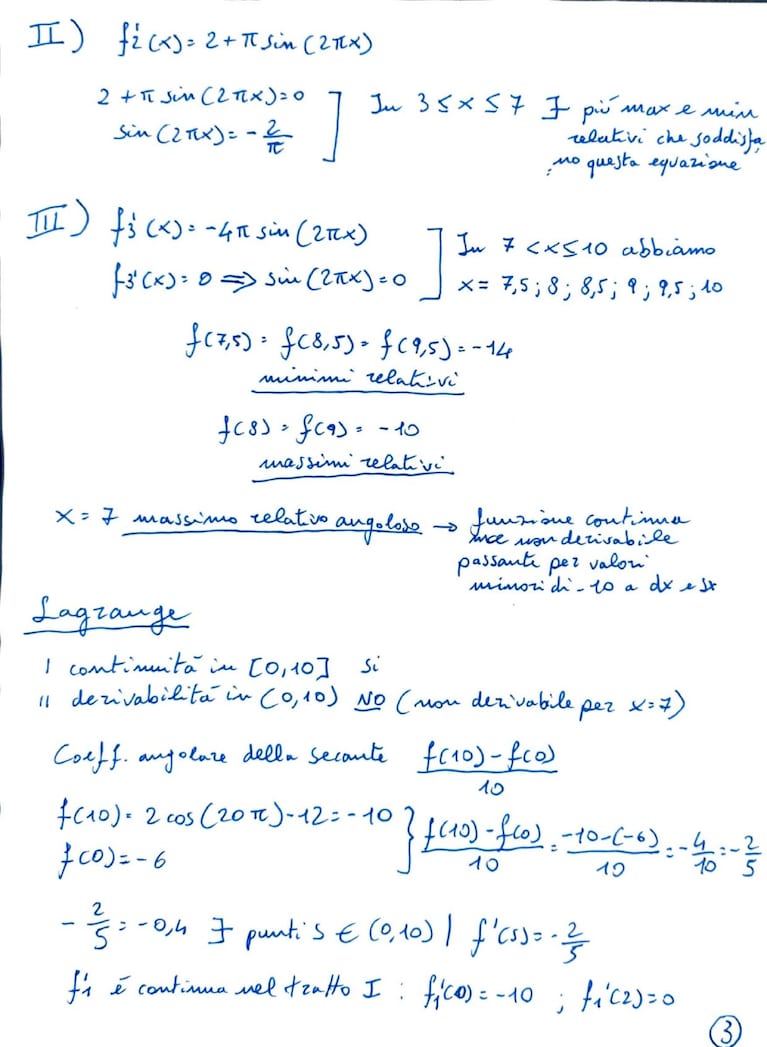 II) f₂'(x) = 2 + π sin(2πx)
2 + π sin(2πx) = 0
sin(2πx) = - 2/π
] In 3 ≤ x ≤ 7 ∃ più max e min
relativi che soddisfa
no questa equazione
III) f₃'(x) = -4π sin(2πx)
f₃'(x) = 0 ⇒ sin(2πx) = 0
] In 7 < x ≤ 10 abbiamo
x = 7,5 ; 8 ; 8,5 ; 9 ; 9,5 ; 10
f(7,5) = f(8,5) = f(9,5) = -14
minimi relativi
f(8) = f(9) = -10
massimi relativi
x = 7 massimo relativo angoloso → funzione continua
non derivabile
passante per valori
minori di -10 a dx e sx
Lagrange
I continuità in [0,10] si
II derivabilità in (0,10) NO (non derivabile per x=7)
Coeff. angolare della secante f(10) - f(0) / 10
f(10) = 2 cos(20π) - 12 = -10
f(0) = -6
} f(10) - f(0) / 10 = -10 - (-6) / 10 = - 4/10 = - 2/5
- 2/5 = -0,4 ∃ punti s ∈ (0,10) | f'(s) = - 2/5
f₁' è continua nel tratto I : f₁'(0) = -10 ; f₁'(2) = 0
3